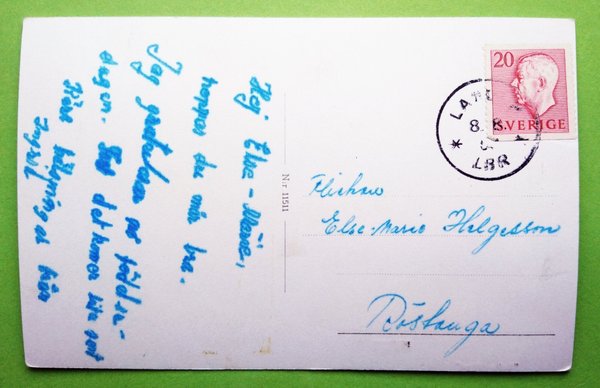 Hej Else-Marie,
hoppas du mår bra.
Jag gratulerar på födelse-
dagen. Det kommer lite sent
Kära hälsningar från
Ingrid
Nr 11511
20
SVERIGE
LA
8. 8
LBR
Flickan
Else-Marie Helgesson
Röstånga